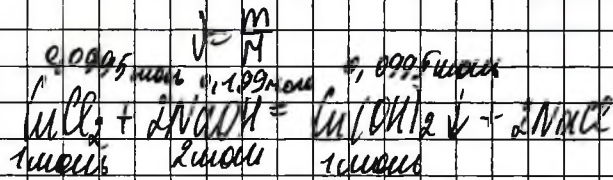 ν = m/M
0,0995 моль 0,199 моль 0,0995 моль
CuCl₂ + 2NaOH = Cu(OH)₂↓ + 2NaCl
1 моль 2 моль 1 моль